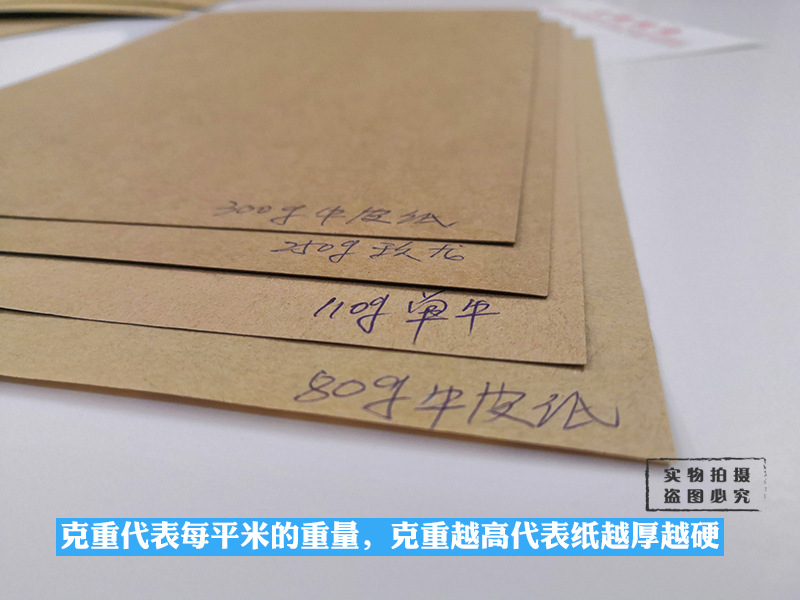 300g牛皮纸
250g玖龙
110g单牛
80g牛皮纸
实物拍摄
盗图必究
克重代表每平米的重量，克重越高代表纸越厚越硬